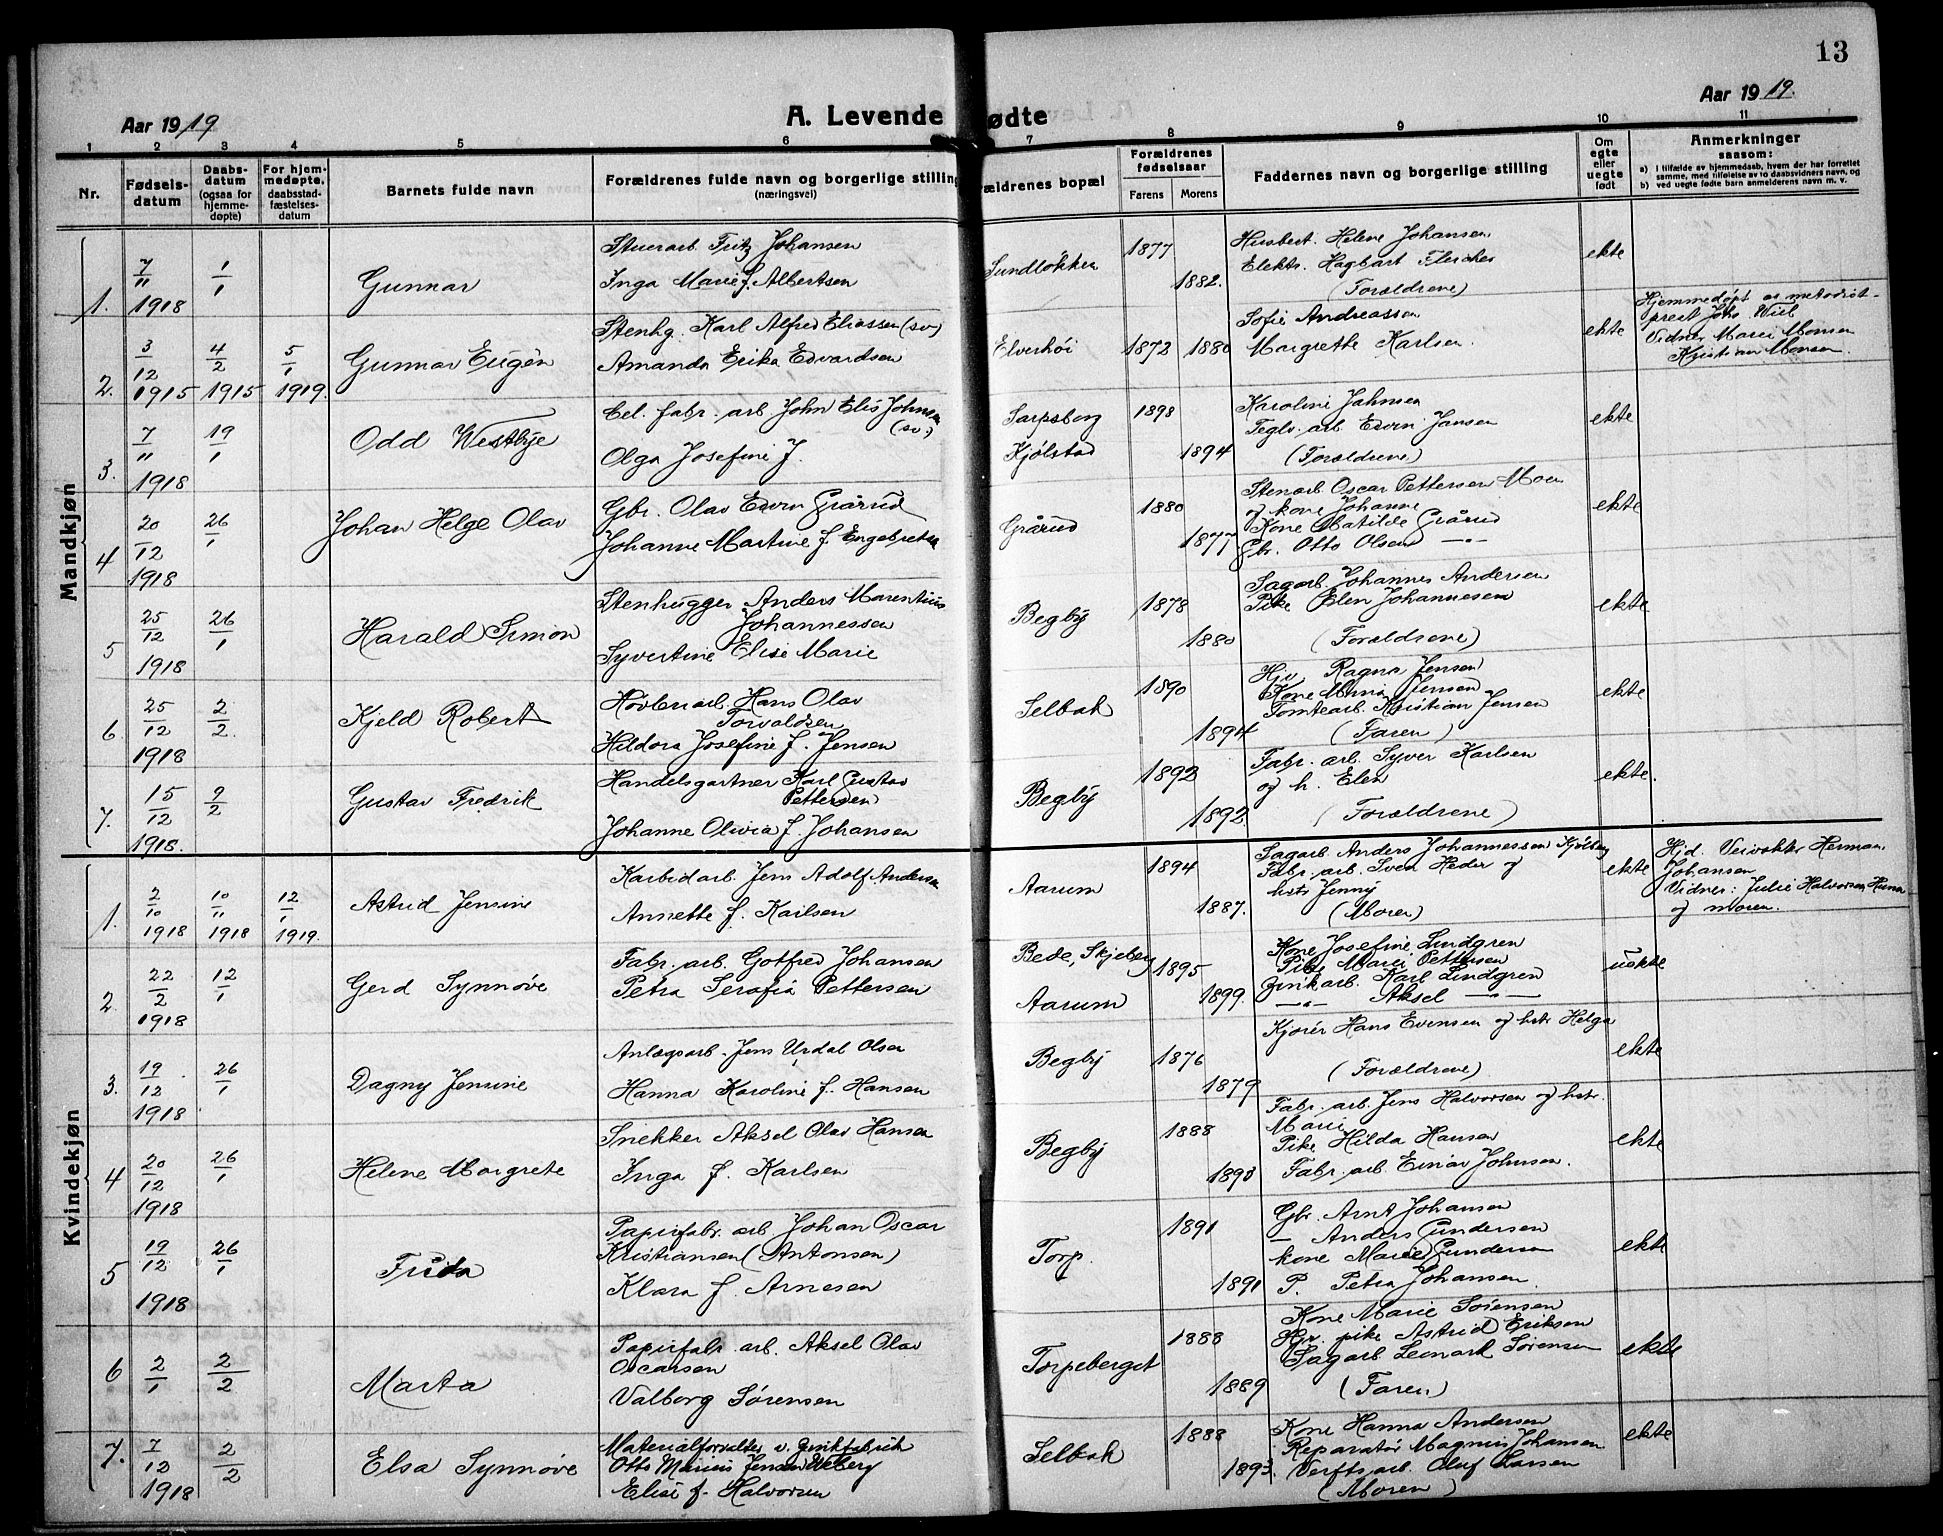 13
Aar 1919
A. Levende
ødte
Aar 1919.
1 2 3 4 5 6 7 8 9 10 11
Nr.
Fødsels-
datum
Daabs-
datum
(ogsaa for
hjemme-
døpte)
For hjem-
medøpte,
daabsstad-
fæstelses-
datum
Barnets fulde navn
Forældrenes fulde navn og borgerlige stilling
(næringsvei)
ældrenes bopæl
Forældrenes
fødselsaar
Farens Morens
Faddernes navn og borgerlige stilling
Om
egte
eller
uegte
født
Anmerkninger
saasom:
a) I tilfælde av hjemmedaab, hvem der har forrettet
samme, med tilføielse av to daabsvidners navn, og
b) ved uegte fødte barn anmelderens navn m. v.
Mandkjøn
1. 7/11 1918 1/1
Gunnar
Stuerarb. Fritz Johansen
Inga Marie f. Albertsen
Sundløkka
1877 1882.
Husbest. Helene Johansen
Elektr. Hagbart
(Forældrene)
ekte
2. 3/12 1915 4/2 1915 5/1 1919.
Gunnar Eugén
Stenhg. Karl Alfred Eliassen (sv)
Amanda Erika Edvardsen
Elverhöi
1872 1880
Sofie Andreassen
Margrethe Karlsen.
ekte
Hjemmedøpt av metodist-
prest Johs Wiel
Vidner Marie Monsen
Kristian Monsen.
3. 7/11 1918 19/1
Odd Westbye
Cel. fabr. arb. John Elis Johnsen
(sv)
Olga Josefine J.
Sarpsborg
Kjølstad
1898 1894
Karoline Johnsen
Teglv. arb. Edvin Jansen
(Forældrene)
ekte
4 20/12 1918 26/1
Johan Helge Olav
Gbr. Olav Edvin Grårud
Johanne Martine f. Engebretsen
Grårud
1880 1877
Stenarb. Oscar Pettersen Moen
og kone Johanne
Kone Matilde Grårud
Gbr. Otto Olsen —"—
ekte
5 25/12 1918 26/1
Harald Simon
Stenhugger Anders Marentius
Johannessen
Syvertine Elise Marie
Begby
1878 1880
Sagarb. Johannes Andersen
Pike Elen Johannesen
(Forældrene)
ekte
6. 25/12 1918 2/2.
Kjeld Robert
Høvleriarb. Hans Olav
Torvaldsen
Hildora Josefine f. Jensen
Selbak
1890 1894
Hjv. Ragna Jensen
Kone Mina Jensen
Tomtearb. Kristian Jensen
(Faren)
ekte
7. 15/12 1918. 9/2
Gustav Fredrik
Handelsgartner Karl Gustav
Pettersen
Johanne Olivia f. Johansen
Begby
1892 1892.
Fabr. arb. Syver Karlsen
og h. Elen
(Forældrene)
ekte.
Kvindekjøn
1. 2/10 1918 10/11 1918 12/1 1919.
Astrid Jensine
Karbidarb. Jens Adolf Andersen
Annette f. Karlsen
Aarum
1894 1887.
Sagarb. Anders Johannessen Kjølberg
Fabr. arb. Sven Heder og
hstr Jenny
(Moren)
ekte
Hjd. Vervokter Herman
Johansen
Vidner: Julie Halvorsen Hunn
og moren.
2. 22/2 1918 12/1
Gerd Synnøve
Fabr. arb. Gotfred Johansen
Petra Serafia Pettersen
Bede, Skjeberg
Aarum
1895 1899.
Kone Josefine Lindgren
Pike Marie Pettersen
Zinkarb. Karl Lindgren
—"— Aksel —"—
uekte
3. 19/12 1918 26/1
Dagny Jensine
Anlægsarb. Jens Urdal Olsen
Hanna Karoline f. Hansen
Begby
1876 1879
Kjører Hans Evensen og hstr Helga
(Forældrene)
ekte
4 20/12 1918 26/1
Helene Margrete
Snekker Aksel Olav Hansen
Inga f. Karlsen
Begby
1888 1890
Fabr. arb. Jens Halvorsen og hstr.
Marie
Pike Hilda Hansen
Fabr. arb Einar Johnsen.
ekte
5 19/12 1918 26/1
Frida
Papirfabr. arb Johan Oscar
Kristiansen (Antonsen)
Klara f. Arnesen
Torp.
1891 1891
Gbr. Arnt Johansen
— Anders Gundersen
kone Marie Gundersen
P. Petra Johansen.
ekte
6 2/1 2/2
Marta
Papirfabr. arb. Aksel Olav
Oscarsen
Valborg Sørensen
Torpeberget
1888 1889
Kone Marie Sørensen
Hgr. pike Astrid Eriksen
Sagarb Leonard Sørensen
(Faren)
ekte
7. 7/12 1918 2/2
Elsa Synnøve
Materialforvalter v. Zinkfabrik
Otto Marius Jensen Weberg
Elise f. Halvorsen
Selbak
1888 1893.
Kone Hanna Andersen
Reparatør Magnus Johansen
Verftsarb. Oluf Larsen
(Moren)
ekte